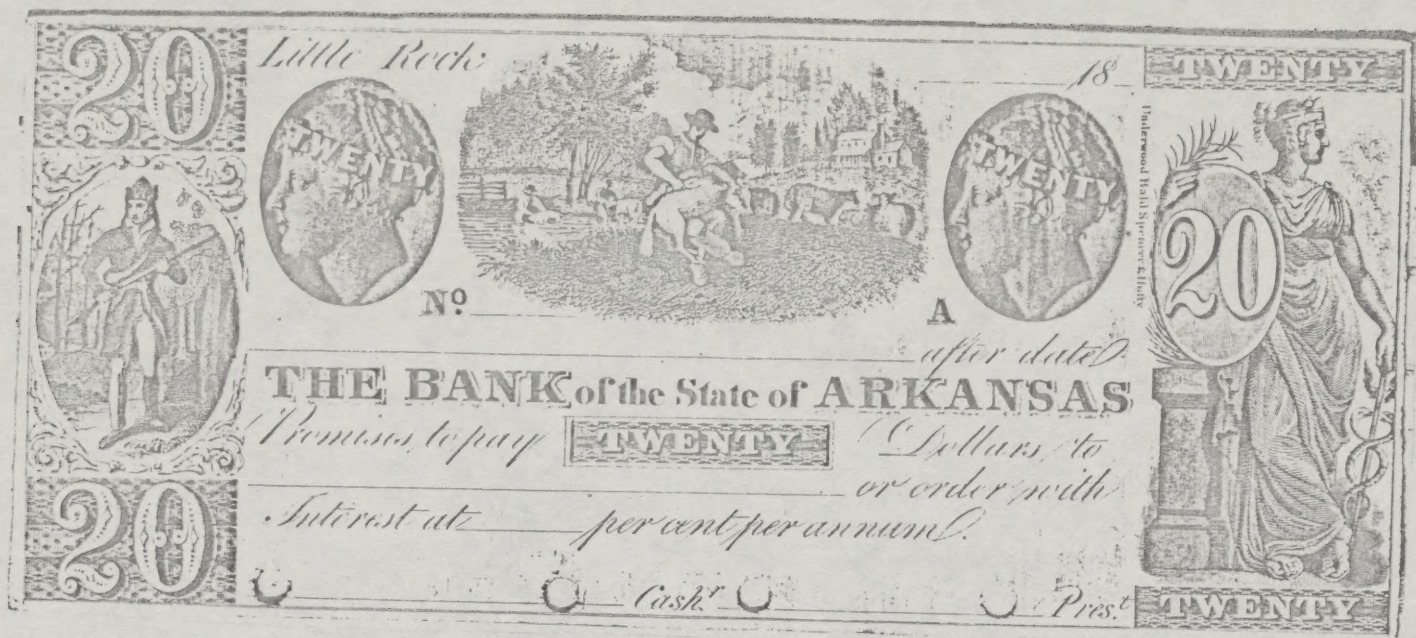 20
Little Rock 18
TWENTY
TWENTY
TWENTY
20
Underwood Bald Spencer & Hufty
Nº A
after date
THE BANK of the State of ARKANSAS
Promises to pay TWENTY Dollars to
or order with
Interest at per cent per annum.
20
Cash.r Pres.t
TWENTY